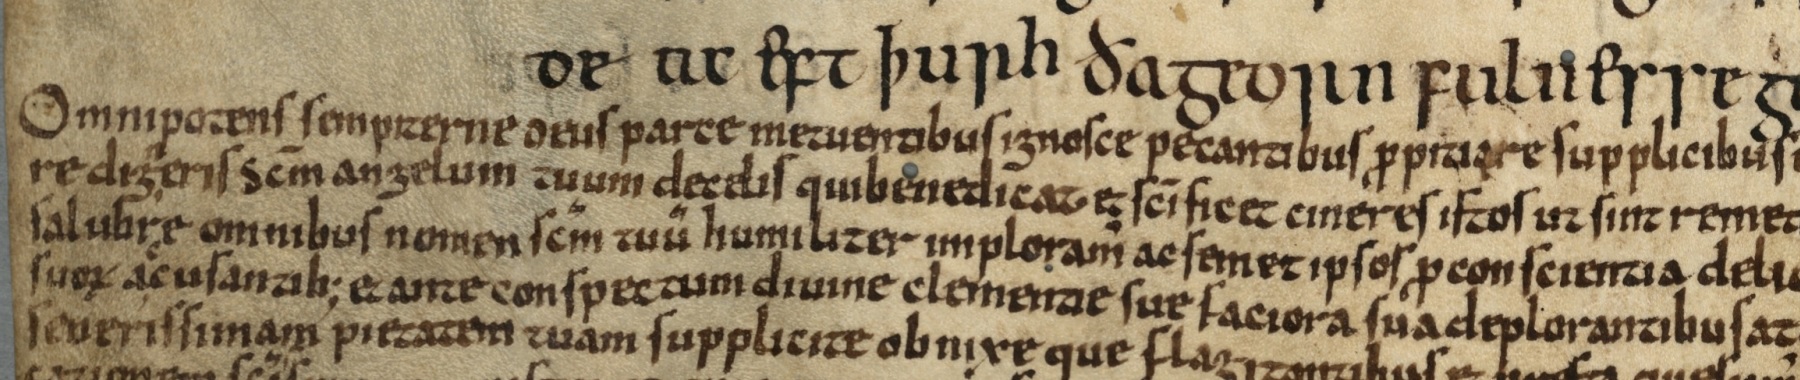 de ac eft þurh dagedun sului
Omnipotens sempiterne deus parce metuentibus ignosce pecantibus ꝓpitiare supplicibus
re digeris scm̄ angelum tuum de celis qui benedicat et sci ficet cineres istos ut sint remet
salubre omnibus nomen scm̄ tuū humiliter imploram̄ ac semet ipsos ꝓ conscientia deli
suoꝝ acusantib; et ante conspectum diuine clementie sue faciora sua deplorantibus at
seuerissimam pietatem tuam supplicite obnixe que flagitantibus